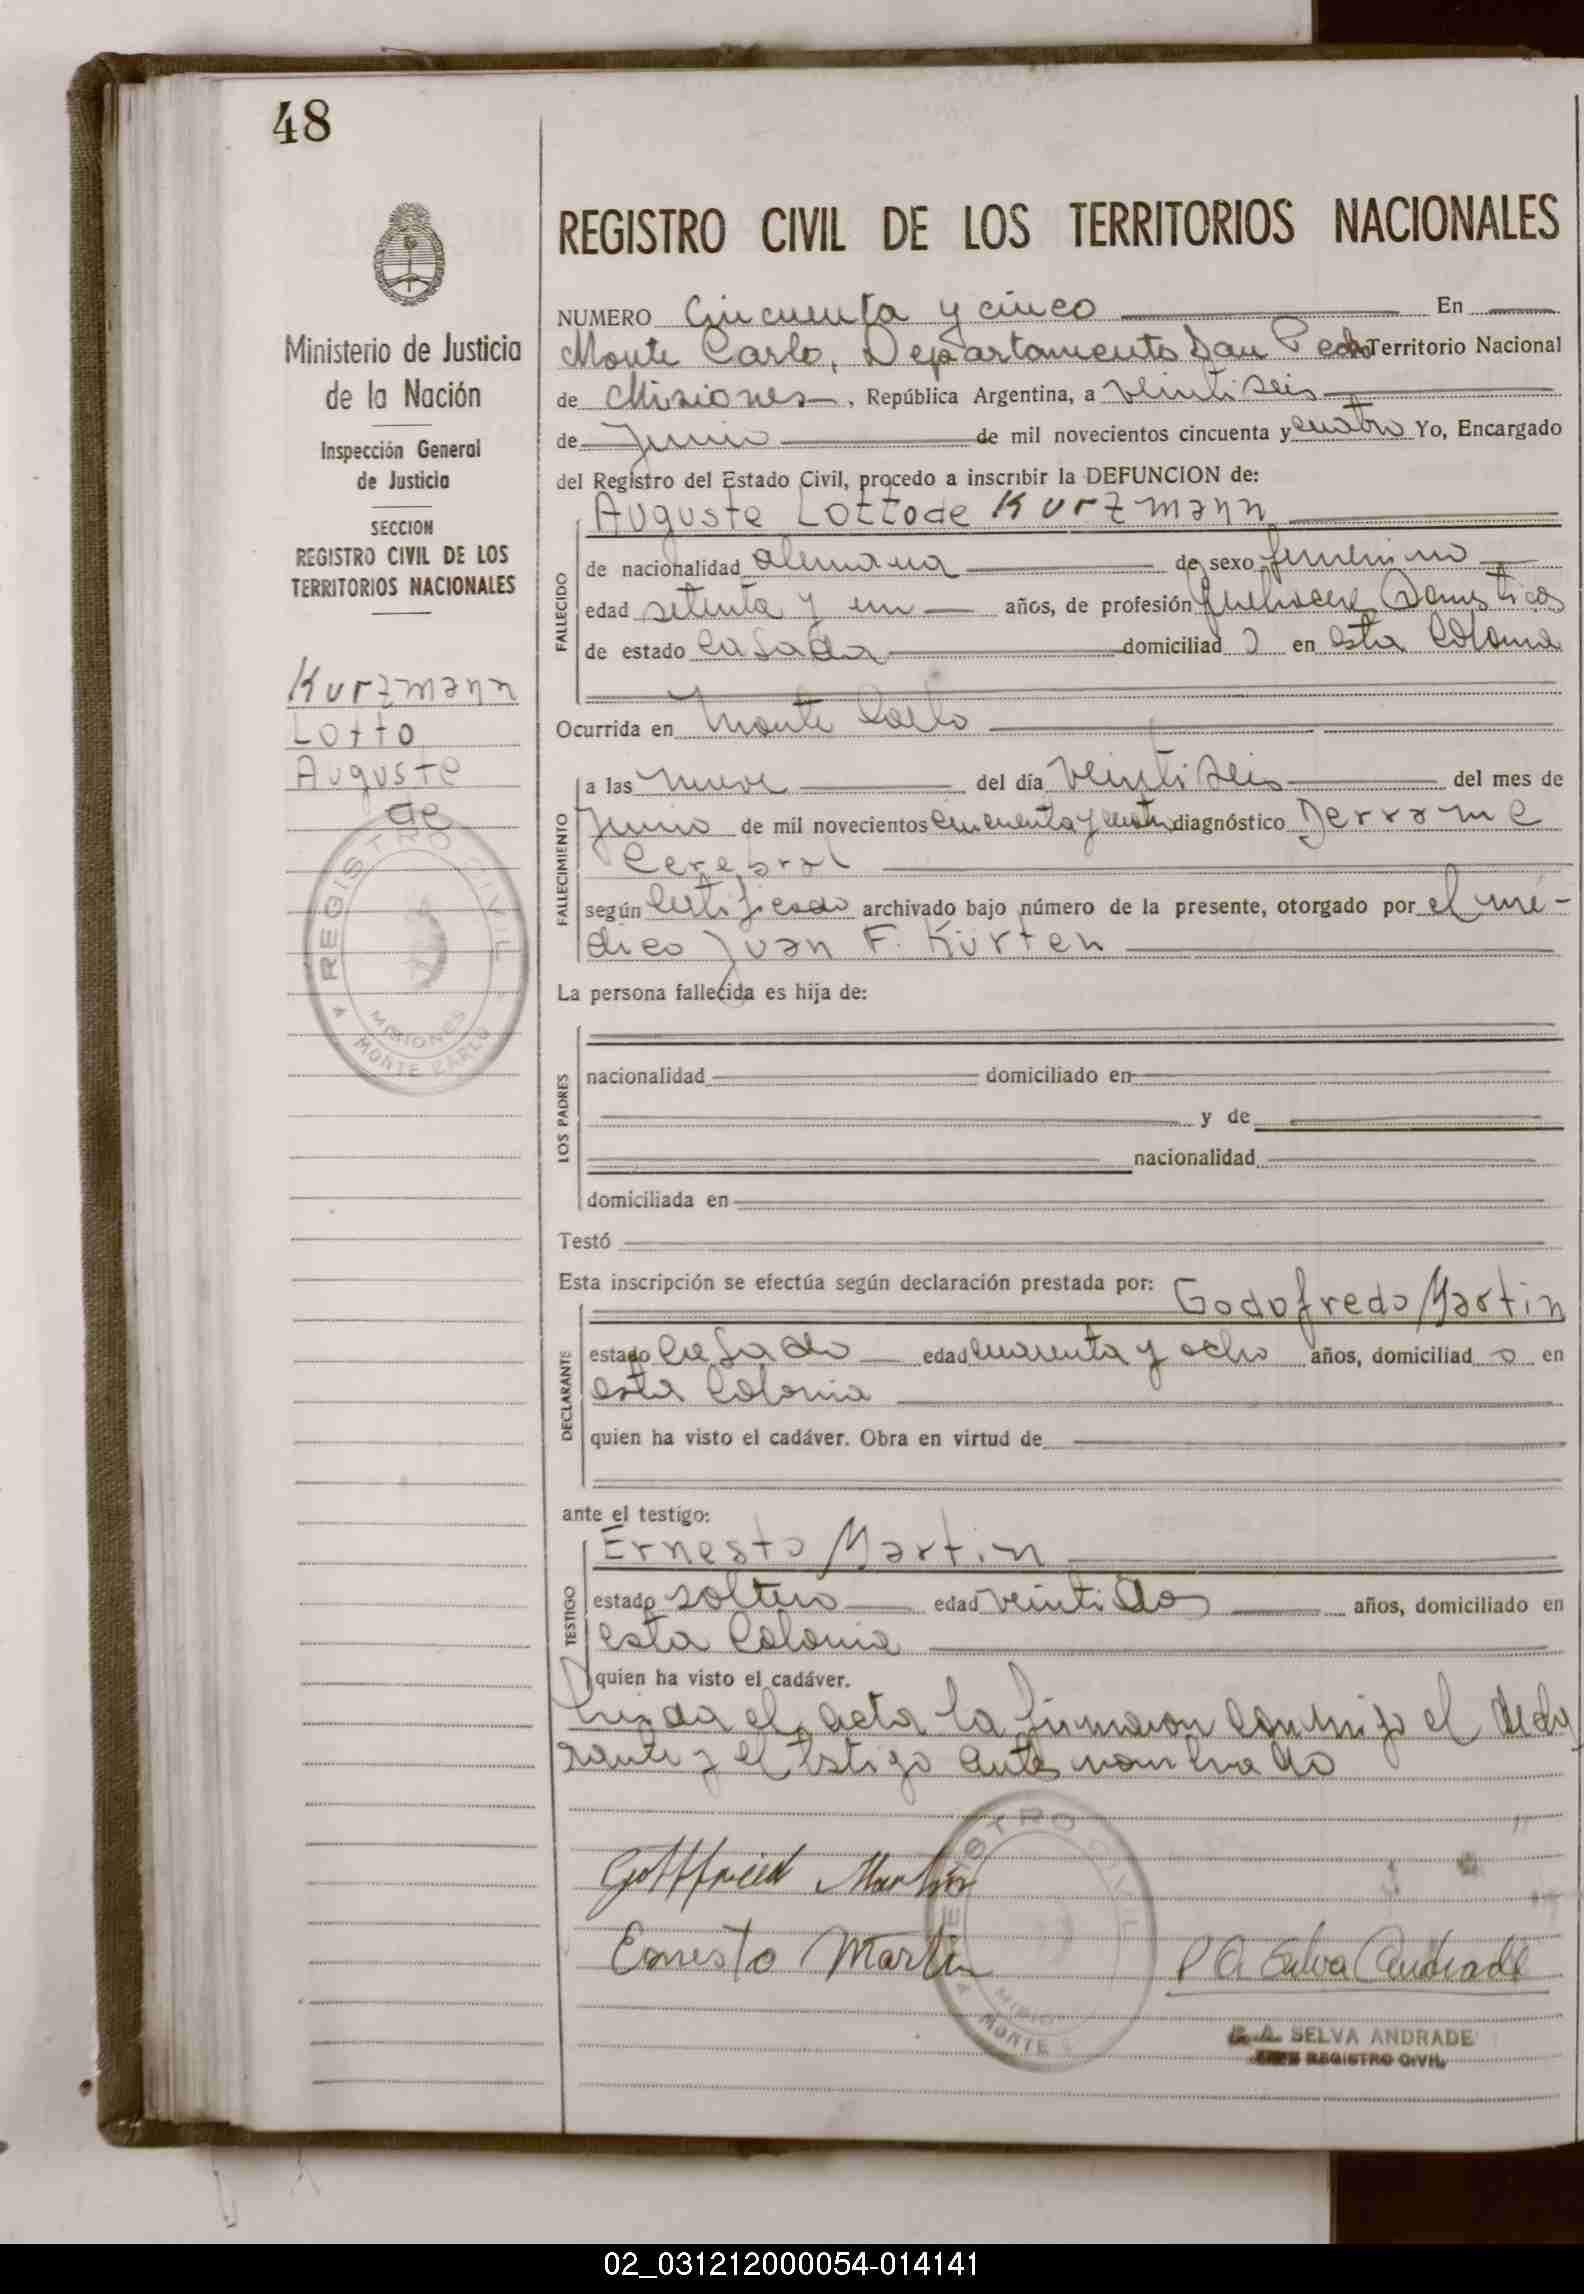 48
Ministerio de Justicia
de la Nación
Inspección General
de Justicia
SECCION
REGISTRO CIVIL DE LOS
TERRITORIOS NACIONALES
Kurzmann
Lotto
Auguste
de
REGISTRO CIVIL
MISIONES
MONTE CARLO
REGISTRO CIVIL DE LOS TERRITORIOS NACIONALES
NUMERO Cincuenta y cinco En
Monte Carlo, Departamento San Pedro Territorio Nacional
de Misiones, República Argentina, a veintiseis
de Junio de mil novecientos cincuenta y cuatro Yo, Encargado
del Registro del Estado Civil, procedo a inscribir la DEFUNCION de:
Auguste Lotto de Kurzmann
FALLECIDO
de nacionalidad alemana de sexo femenino
edad setenta y un años, de profesión quehacere Domesticos
de estado casada domiciliad a en esta Colonia
Ocurrida en Monte Carlo
FALLECIMIENTO
a las nueve del día veintiseis del mes de
Junio de mil novecientos cincuenta y cuatro diagnóstico Derrame
Cerebral
según Certificado archivado bajo número de la presente, otorgado por el mé-
dico Juan F. Kürten
La persona fallecida es hija de:
LOS PADRES
nacionalidad domiciliado en
y de
nacionalidad
domiciliada en
Testó
Esta inscripción se efectúa según declaración prestada por: Godofredo Martin
DECLARANTE
estado Casado edad cuarenta y ocho años, domiciliad o en
esta Colonia
quien ha visto el cadáver. Obra en virtud de
ante el testigo:
Ernesto Martin
TESTIGO
estado soltero edad veintidos años, domiciliado en
esta Colonia
quien ha visto el cadáver.
Leida el acta la firmaron conmigo el decla
rante y el testigo antes nombrado
Gottfried Martin
Ernesto Martin
P A Selva Andrade
P. A. SELVA ANDRADE
JEFE REGISTRO CIVIL
02_031212000054-014141